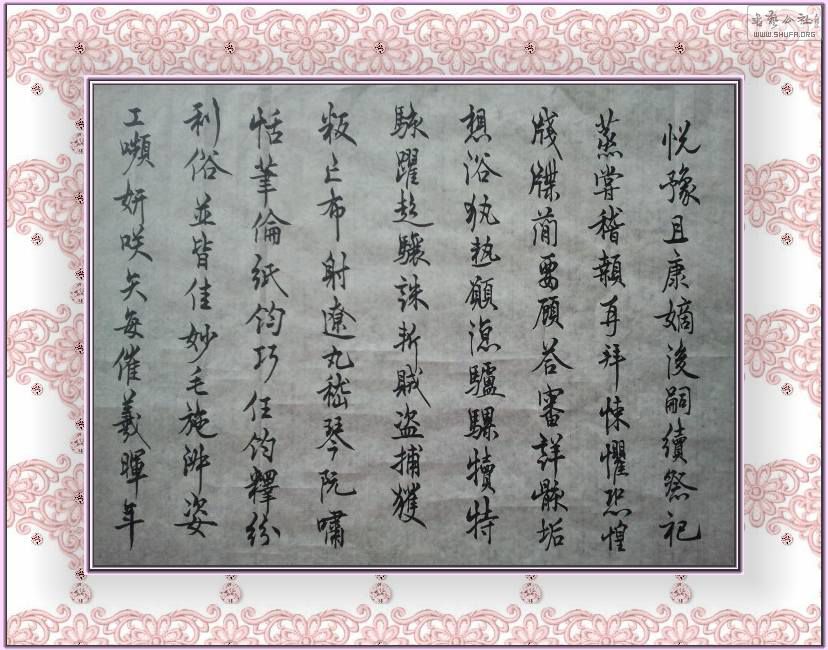 悦豫且康嫡後嗣續祭祀
蒸嘗稽顙再拜悚懼恐惶
牋牒簡要顧荅審詳骸垢
想浴執熱願涼驢騾犢特
駭躍超驤誅斬賊盜捕獲
叛亡布射遼丸嵇琴阮嘯
恬筆倫紙鈞巧任釣釋紛
利俗並皆佳妙毛施淑姿
工嚬妍咲矢每催羲暉年
書藝公社
WWW.SHUFA.ORG